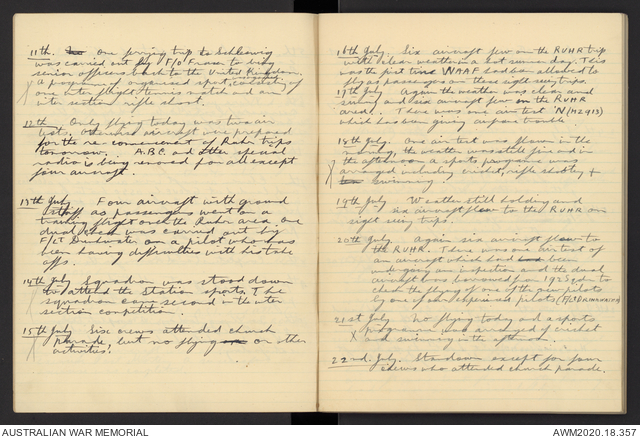 11th. One ferrying trip to Schleswig
was carried out by F/O Fraser to bring
senior officers back to the United Kingdom.
A program of organised sport consisting of
one inter flight tennis match and an
inter section rifle shoot.
12th Only flying today was two air
tests. Otherwise aircraft were prepared
for the re-commencement of Ruhr trips
tomorrow. A.B.C. and other special
radio is being removed for all except
four aircraft.
13th July Four aircraft with ground
staff as passengers went on a
training flight over the Ruhr area. One
dual check was carried out by
F/Lt on a pilot who has
been having difficulties with his take
offs.
14th July Squadron was stood down
to attend the Station sports. The
squadron came second in the inter
section competition.
15th July Six crews attended church
parade, but no flying or other
activities.
16th July. Six aircraft flew on the RUHR trip
with clear weather in a hot summer day. This
was the first time WAAF had been allowed to
fly as passengers on these sight seeing trips.
17th July Again the weather was clear and
sunny and six aircraft flew on the RUHR
area. There was one air test 'N'
which has been giving trouble
18th July. One air test was flown in the
morning, the weather was still fine and in
the afternoon a sports programme was
arranged including cricket, rifle shooting &
swimming.
19th July Weather still holding and
six aircraft flew to the RUHR on
sight seeing trips.
20th July Again six aircraft flew to
the RUHR. There was one air test of
an aircraft which had been
undergoing an inspection and the dual
aircraft was borrowed from 1923 Sqdn to
check the flying of one of the new pilots
by one of our experienced pilots
21st July No flying today and a sports
programme was arranged of cricket
and swimming in the afternoon.
22nd. July. Stand down except for four
crews who attended church parade.
AUSTRALIAN WAR MEMORIAL
AWM2020.18.357